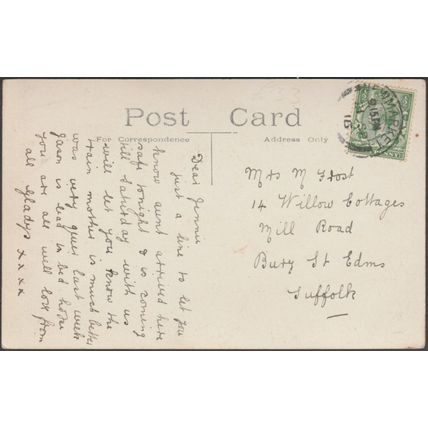 Post Card
For Correspondence
Address Only
Dear Jennie
Just a line to let you
know aunt arrived here
safe tonight & is coming
till Saturday with us
will let you know the
train mother is much better
was very quiet last week
is in bed
you are all well love from
all Gladys x x x x
Mrs M Frost
14 Willow Cottages
Mill Road
Bury St Edms
Suffolk